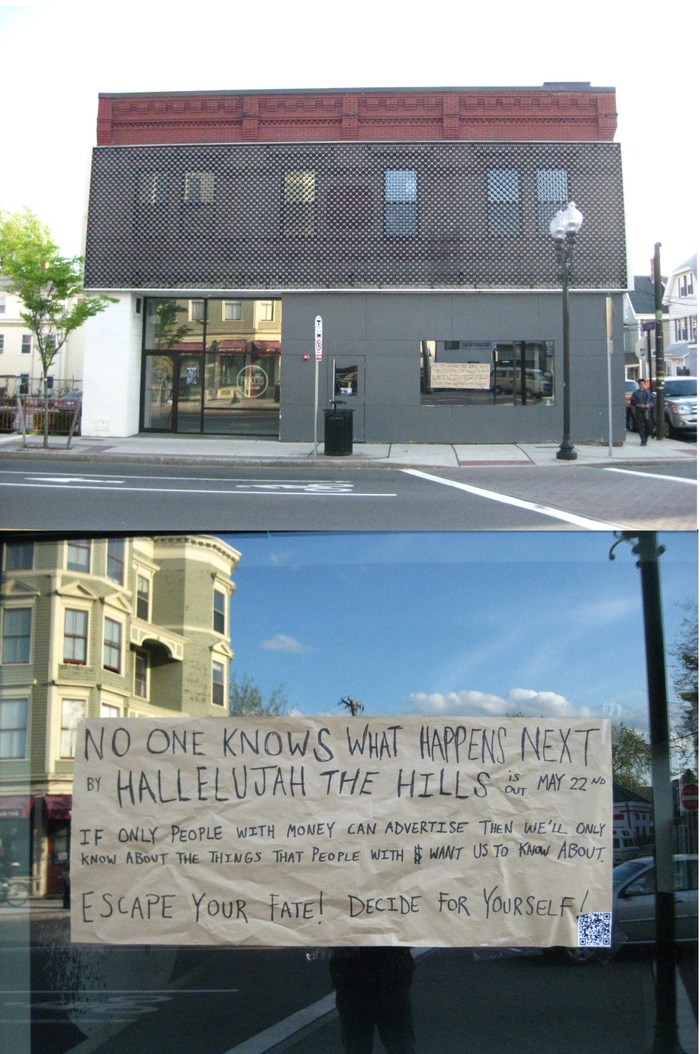 NO ONE KNOWS WHAT HAPPENS NEXT
BY HALLELUJAH THE HILLS is OUT MAY 22ND
IF ONLY PEOPLE WITH MONEY CAN ADVERTISE THEN WE'LL ONLY
KNOW ABOUT THE THINGS THAT PEOPLE WITH $ WANT US TO KNOW ABOUT.
ESCAPE YOUR FATE! DECIDE FOR YOURSELF!